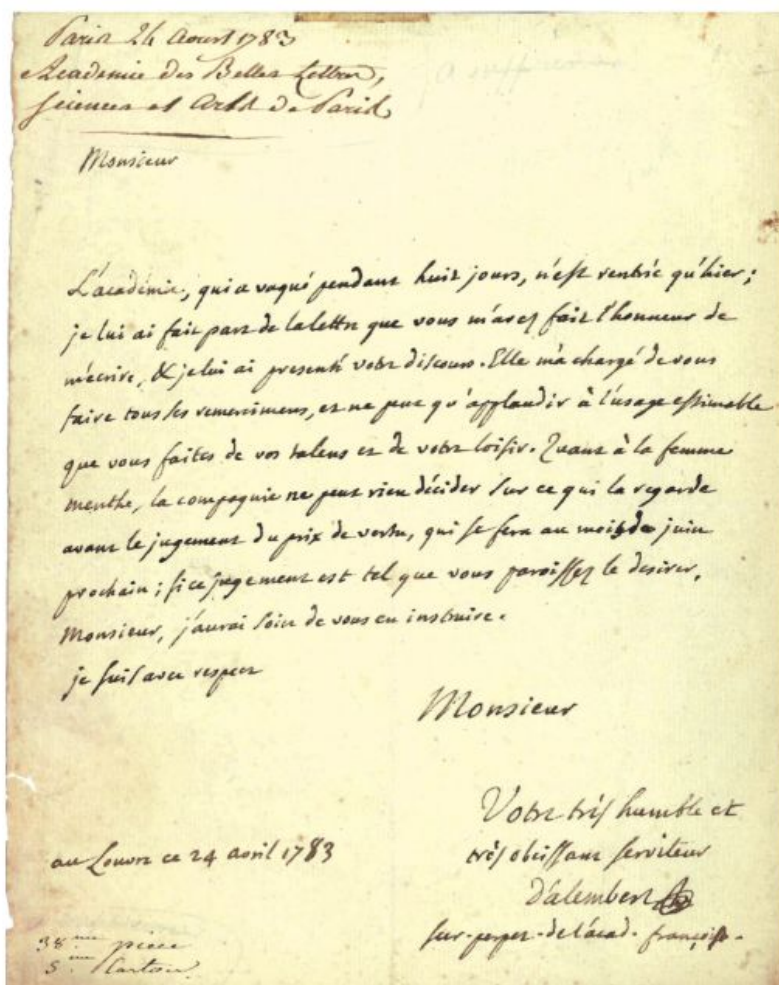 Paris 24 Aoust 1783
Academie des Belles Lettres,
Sciences et Arts de Paris
Monsieur
L'académie, qui a vaqué pendant huit jours, n'est rentrée qu'hier;
je lui ai fait part de la lettre que vous m'avez fait l'honneur de
m'écrire, & je lui ai presenté votre discours. Elle m'a chargé de vous
faire tous ses remercimens, et ne peut qu'applaudir à l'usage estimable
que vous faites de vos talens et de votre loisir. Quant à la femme
menthe, la compagnie ne peut rien décider sur ce qui la regarde
avant le jugement du prix de vertu, qui se fera au mois de juin
prochain; si ce jugement est tel que vous paroissez le desirer,
Monsieur, j'aurai soin de vous en instruire.
je suis avec respect
Monsieur
Votre très humble et
très obeissant serviteur
D'alembert
secr. perpet. de l'acad. françoise.
au Louvre ce 24 avril 1783
38me piece
5me Carton